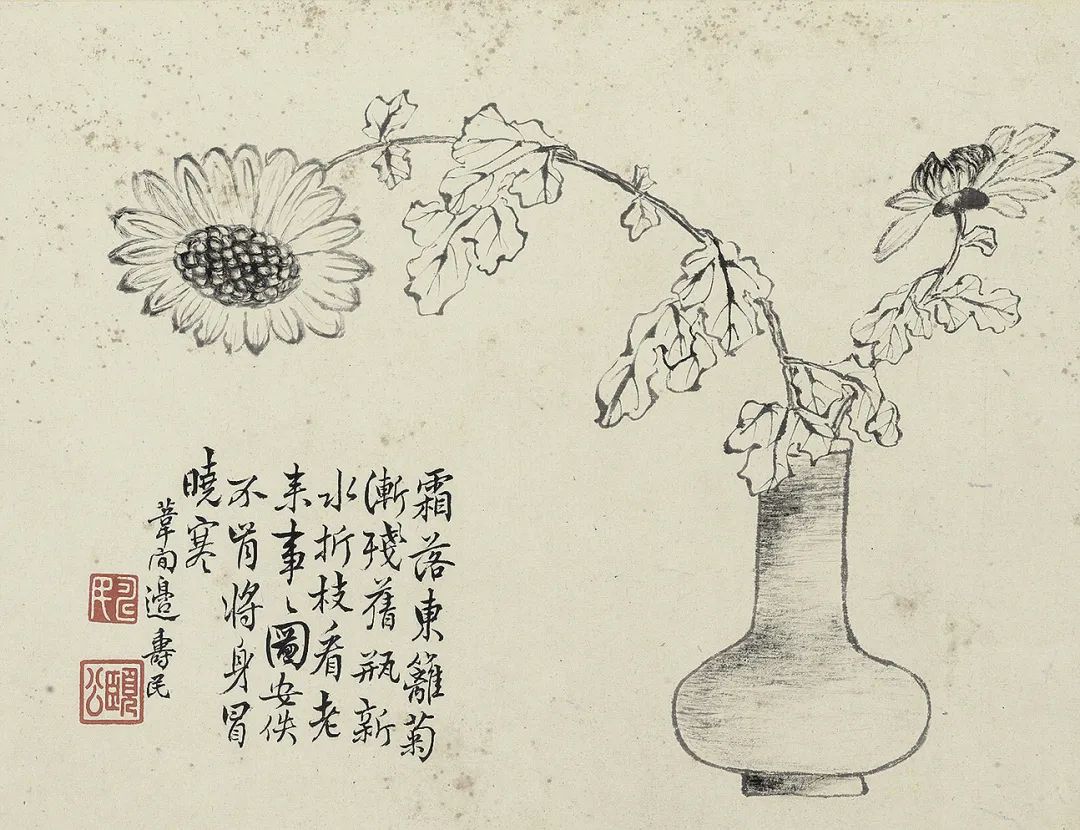 霜落東籬菊
漸殘舊瓶新
水折枝看老
来事〻圖安佚
不肯將身冒
曉寒
葦間邊壽民
頤公